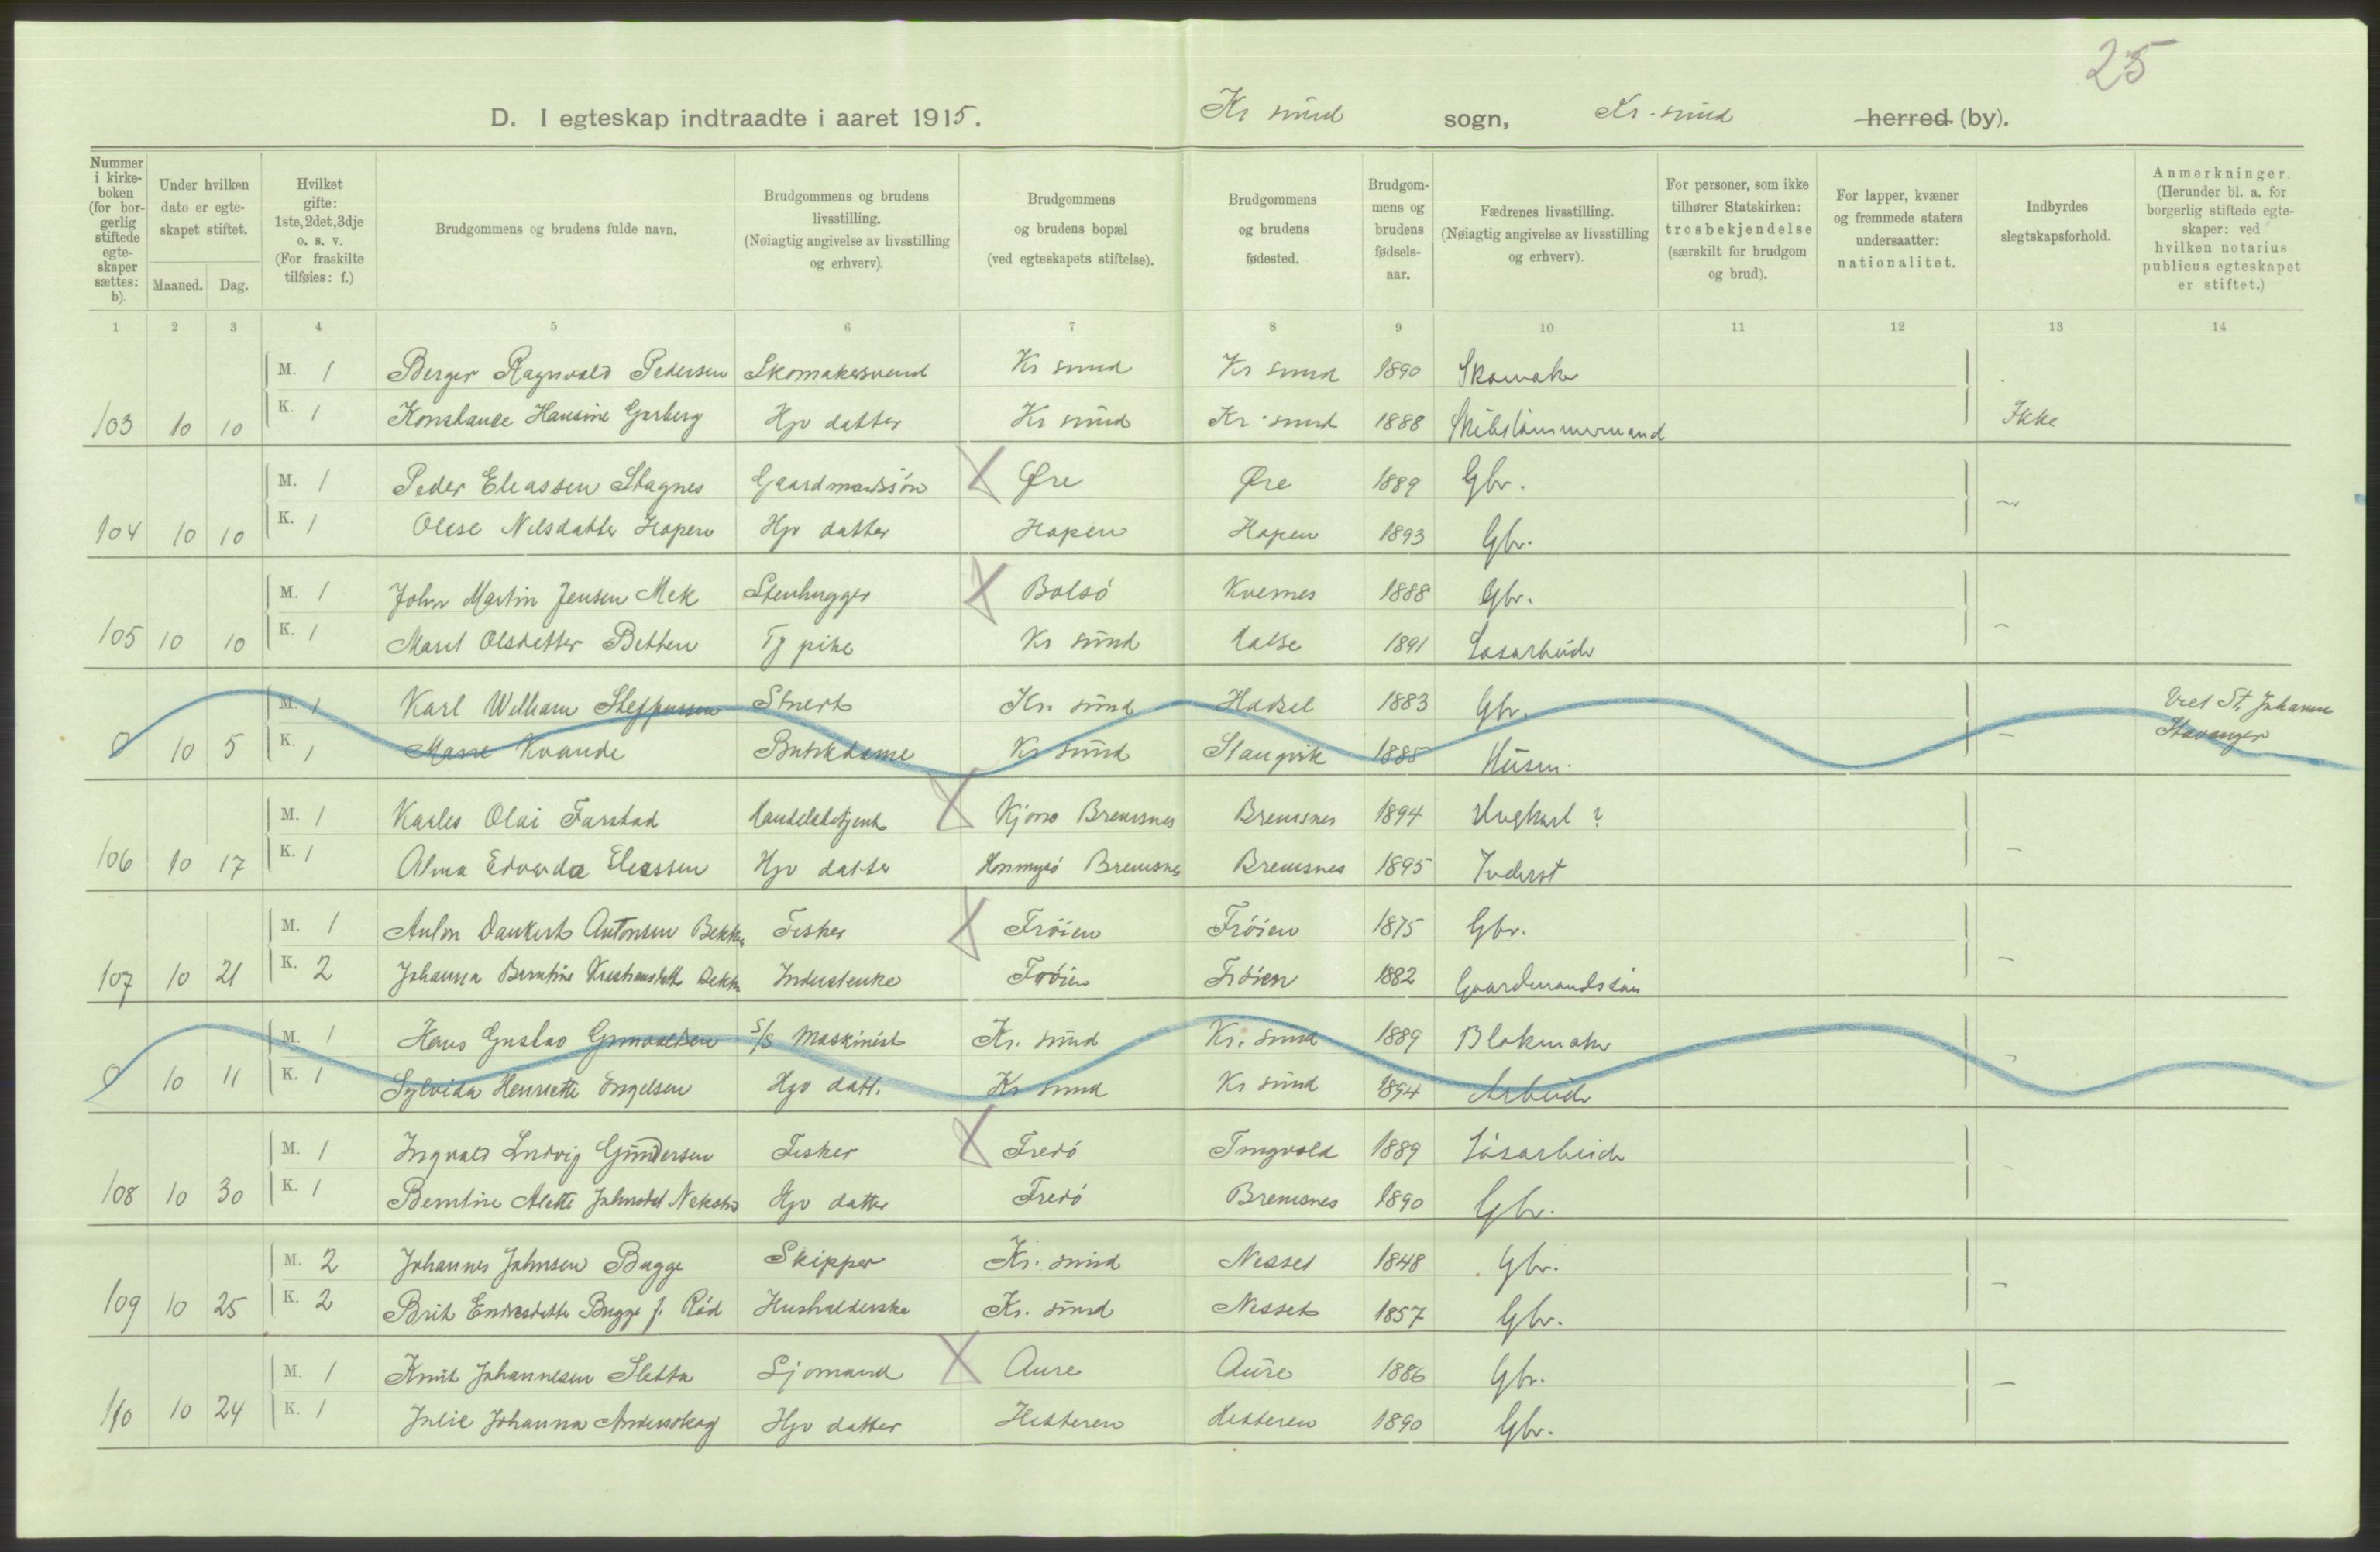 25
D. I egteskap indtraadte i aaret 1915. Kr sund sogn, Kr. sund herred (by).
Nummer i kirkeboken (for borgerlig stiftede egteskaper sættes: b).
Under hvilken dato er egteskapet stiftet.
Maaned. Dag.
Hvilket gifte: 1ste, 2det, 3dje o. s. v. (For fraskilte tilføies: f.)
Brudgommens og brudens fulde navn.
Brudgommens og brudens livsstilling. (Nøiagtig angivelse av livsstilling og erhverv).
Brudgommens og brudens bopæl (ved egteskapets stiftelse).
Brudgommens og brudens fødested.
Brudgommens og brudens fødselsaar.
Fædrenes livsstilling. (Nøiagtig angivelse av livsstilling og erhverv).
For personer, som ikke tilhører Statskirken: trosbekjendelse (særskilt for brudgom og brud).
For lapper, kvæner og fremmede staters undersaatter: nationalitet.
Indbyrdes slegtskapsforhold.
Anmerkninger. (Herunder bl. a. for borgerlig stiftede egteskaper: ved hvilken notarius publicus egteskapet er stiftet.)
1 2 3 4 5 6 7 8 9 10 11 12 13 14
M. 1 Berger Ragnvald Pedersen Skomakersvend Kr sund Kr sund 1890 Skomaker
103 10 10 K. 1 Konstanse Hansine Garberg Hjv datter Kr sund Kr. sund 1888 Skibstømmermand Ikke
M. 1 Peder Eleassen Stagnes Gaardmandssøn Øre Øre 1889 Gbr. ~
104 10 10 K. 1 Olise Nilsdatter Hopen Hjv datter Hopen Hopen 1893 Gbr.
M. 1 John Martin Jensen Mek Stenhugger Bolsö Kvernes 1888 Gbr.
105 10 10 K. 1 Marit Olsdatter Betten Tj pike Kr sund Halse 1891 Løsarbeider -
M. 1 Karl William Steffensen Stuert Kr. sund Hadsel 1883 Gbr. Viet St. Johannes
0 10 5 K. 1 Kvande Butikdame Kr sund Stangvik 1885 Husm. - Stavanger
M. 1 Karles Olai Farstad Handelsbetjent Bremsnes Bremsnes 1894 ?
106 10 17 K. 1 Alma Edvarda Eleassen Hjv datter Bremsnes Bremsnes 1895 Inderst -
M. 1 Anton Dankert Antonsen Bekken Fisker Frøien Frøien 1875 Gbr.
107 10 21 K. 2 Johanna Berntine Inderstenke Frøien Frøien 1882 Gaardmandssøn -
M. 1 Hans Gustav S/S Maskinist Kr. sund Kr. sund 1889 Blokmaker
0 10 11 K. 1 Sylvida Henriette Engelsen Hjv datt. Kr sund Kr sund 1894 Arbeider -
M. 1 Ingvald Ludvig Gundersen Fisker Fredö Tingvold 1889 Løsarbeider
108 10 30 K. 1 Berntine Alette Hjv datter Fredö Bremsnes 1890 Gbr. -
M. 2 Johannes Johnsen Bugge Skipper Kr. sund Nesset 1848 Gbr.
109 10 25 K. 2 Brit Endresdatter Bugge f. Rød Husholderske Kr. sund Nesset 1857 Gbr. -
M. 1 Knut Johannesen Sletta Sjømand Aure Aure 1886 Gbr. -
110 10 24 K. 1 Julie Johanna Andersskog Hjv datter Hitteren Hitteren 1890 Gbr.